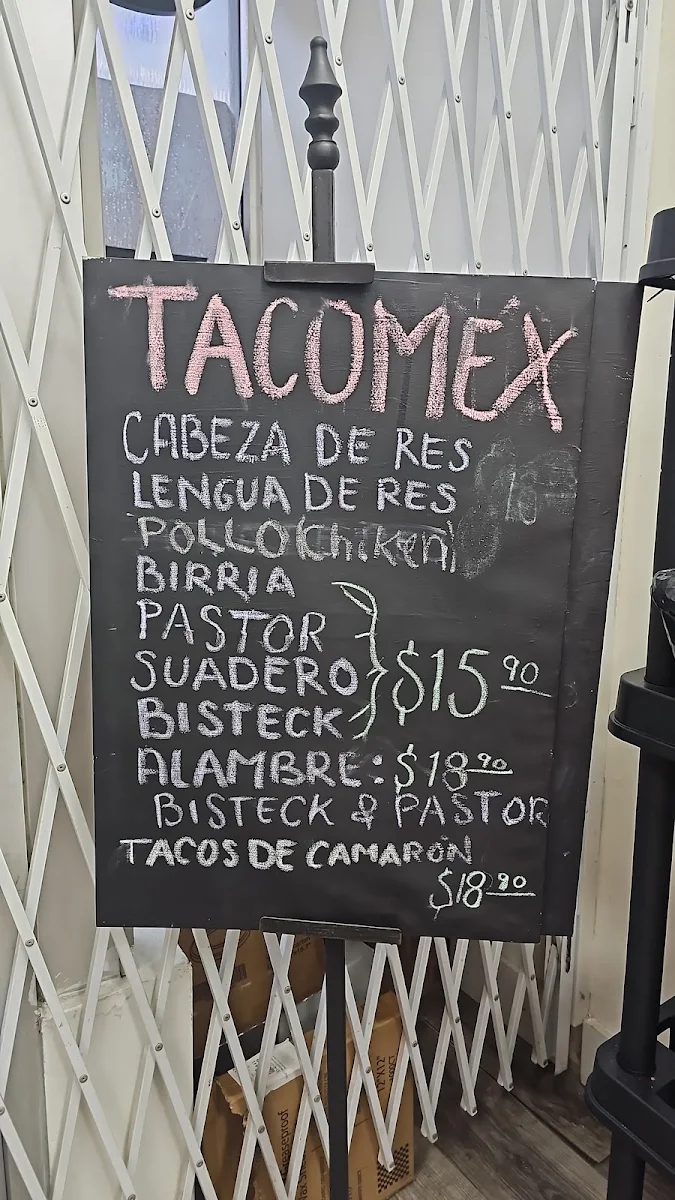 TACOMEX
CABEZA DE RES
LENGUA DE RES
POLLO (Chiken)
BIRRIA
PASTOR
SUADERO
BISTECK
$15 90
ALAMBRE: $18 90
BISTECK & PASTOR
TACOS DE CAMARÓN
$18 90
12"X12"